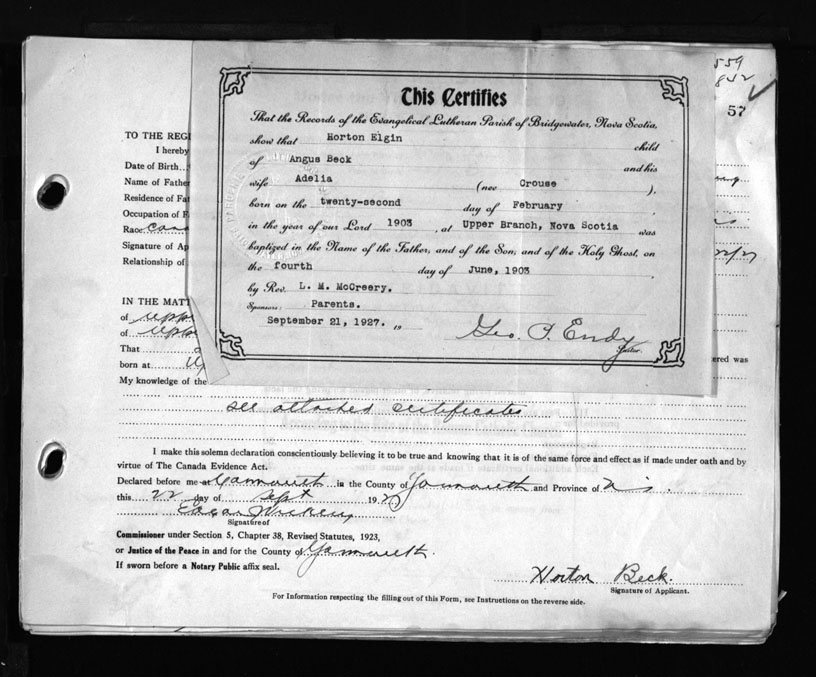 559
852
57
This Certifies
That the Records of the Evangelical Lutheran Parish of Bridgewater, Nova Scotia,
show that Horton Elgin child
of Angus Beck and his
wife Adelia (nee Crouse ),
born on the twenty-second day of February ,
in the year of our Lord 1903 , at Upper Branch, Nova Scotia was
baptized in the Name of the Father, and of the Son, and of the Holy Ghost, on
the fourth day of June, 1903 ,
by Rev. L. M. McCreery.
Sponsors: Parents.
September 21, 1927. 19
Geo. P. Endy
Pastor.
TO THE REGI
I hereby
Date of Birth
Name of Father
Residence of Fat
Occupation of F
Race
Signature of Ap
Relationship of
IN THE MATT
of
of
That
born at
ered was
My knowledge of the
see attached certificates
I make this solemn declaration conscientiously believing it to be true and knowing that it is of the same force and effect as if made under oath and by
virtue of The Canada Evidence Act.
Declared before me at Yarmouth in the County of Yarmouth and Province of N.S.
this 22 day of Sept 1927
Signature of
Commissioner under Section 5, Chapter 38, Revised Statutes, 1923,
or Justice of the Peace in and for the County of Yarmouth.
If sworn before a Notary Public affix seal.
Horton Beck.
Signature of Applicant.
For Information respecting the filling out of this Form, see Instructions on the reverse side.